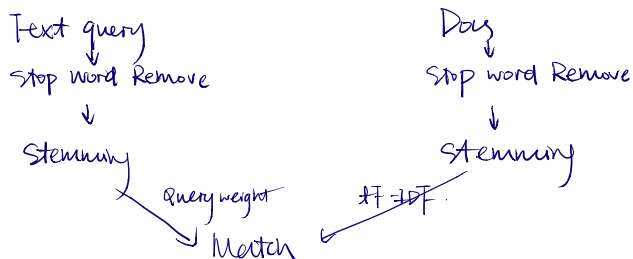 Text query
Stop word Remove
Stemming
Query weight
Docs
Stop word Remove
Stemming
tf-IDF
Match